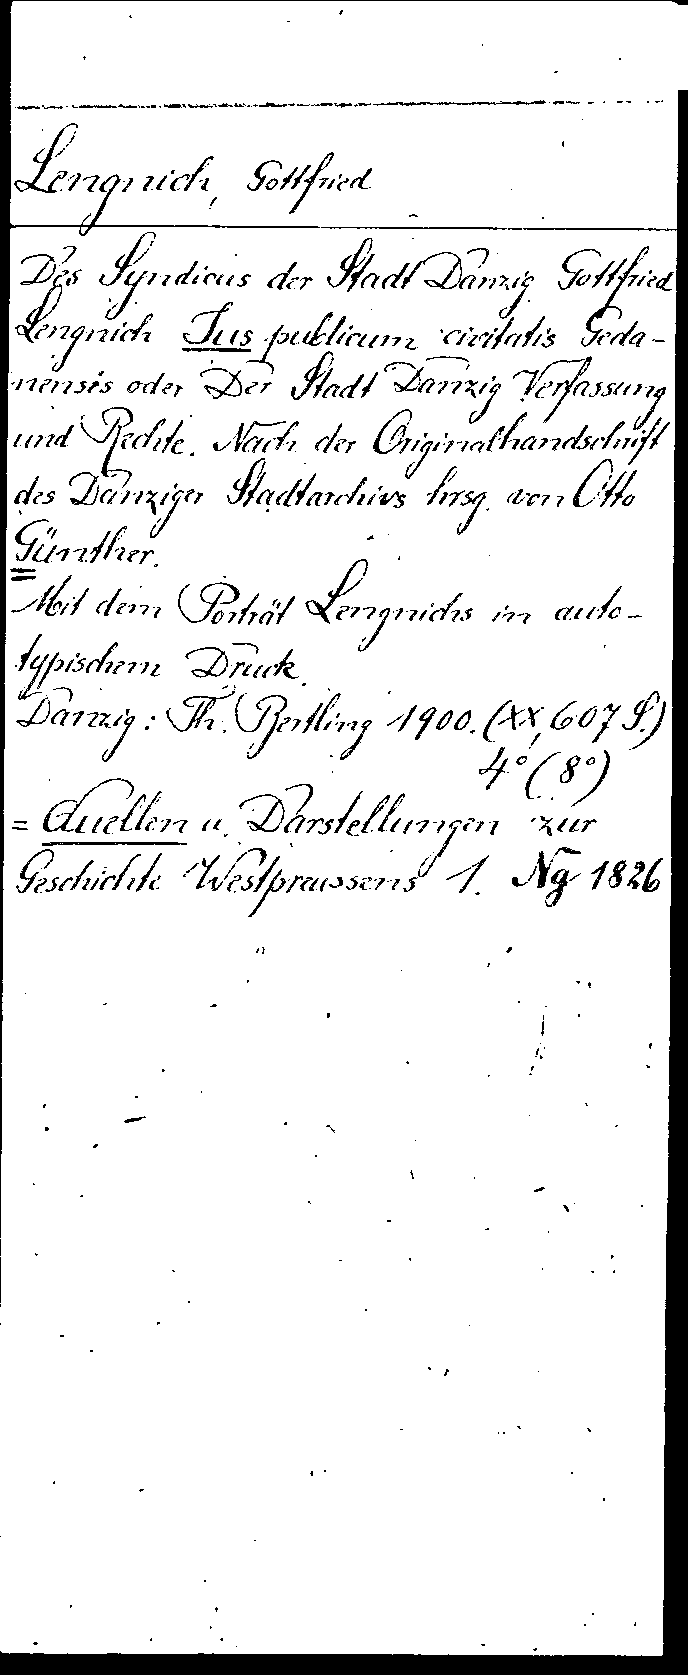 Lengnich, Gottfried
Des Syndicus der Stadt Danzig Gottfried
Lengnich Jus publicum civitatis Geda-
nensis oder Der Stadt Danzig Verfassung
und Rechte. Nach der Originalhandschrift
des Danziger Stadtarchivs hrsg. von Otto
Günther.
Mit dem Porträt Lengnichs in auto-
typischem Druck.
Danzig: Th. Bertling 1900. (XX, 607 S.)
4° (8°)
= Quellen u. Darstellungen zur
Geschichte Westpreussens 1. Ng 1826